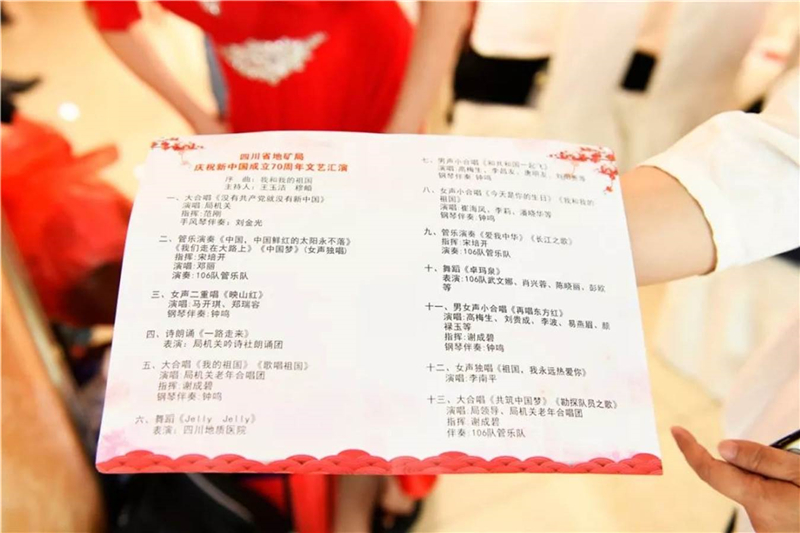 四川省地矿局
庆祝新中国成立70周年文艺汇演
序 曲：我和我的祖国
主持人：王玉洁 穆船
一、大合唱《没有共产党就没有新中国》
演唱：局机关
指挥：范刚
手风琴伴奏：刘金光
二、管乐演奏《中国，中国鲜红的太阳永不落》
《我们走在大路上》《中国梦》(女声独唱)
指挥：宋培开
演唱：邓丽
演奏：106队管乐队
三、女声二重唱《映山红》
演唱：马开琪、郑瑞容
钢琴伴奏：钟鸣
四、诗朗诵《一路走来》
表演：局机关吟诗社朗诵团
五、大合唱《我的祖国》《歌唱祖国》
演唱：局机关老年合唱团
指挥：谢成碧
钢琴伴奏：钟鸣
六、舞蹈《Jelly Jelly》
表演：四川地质医院
七、男声小合唱《和共和国一起飞》
演唱：高梅生、李昌友、唐明友、等
钢琴伴奏：钟鸣
八、女声小合唱《今天是你的生日》《我和我的
祖国》
演唱：崔海凤、李莉、潘晓华等
钢琴伴奏：钟鸣
九、管乐演奏《爱我中华》《长江之歌》
指挥：宋培开
演奏：106队管乐队
十、舞蹈《卓玛泉》
表演：106队武文娜、肖兴蓉、陈晓丽、彭姣
等
十一、男女声小合唱《再唱东方红》
演唱：高梅生、刘贵成、李波、易燕眉、颜
禄玉等
钢琴伴奏：钟鸣
十二、女声独唱《祖国，我永远热爱你》
演唱：李南平
十三、大合唱《共筑中国梦》《勘探队员之歌》
演唱：局领导、局机关老年合唱团
指挥：谢成碧
伴奏：106队管乐队